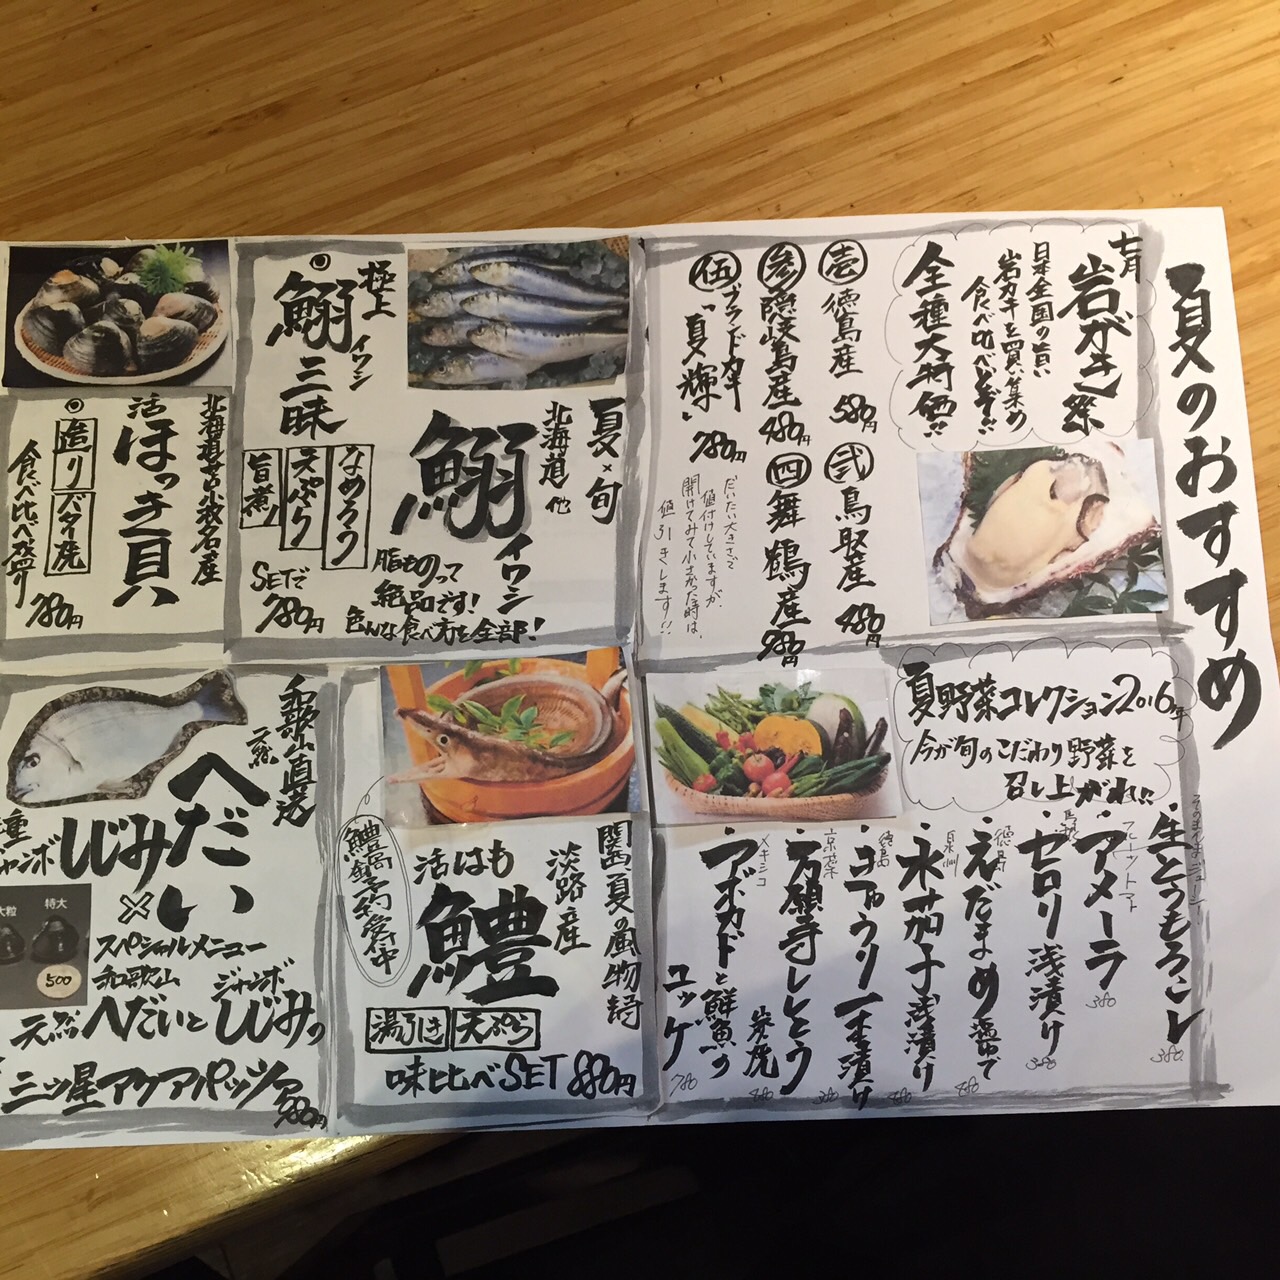 夏のおすすめ
七月
岩がき祭
日本全国の旨い
岩カキを買い集め
食べ比べ
全種大特価!!
壱 徳島産 580円
弐 鳥取産 480円
参 隠岐島産 480円
四 舞鶴産 980円
伍 ブランドカキ
"夏輝" 780円
だいたい大きさで
値付けしていますが、
開けてみて小さかった時は、
値引きします!!
夏×旬
北海道 他
鰯 イワシ
脂ものって
絶品です!
色んな食べ方を全部!
極上
イワシ
鰯三昧
なめろう
天ぷら
旨煮
SETで
780円
北海道苫小牧名産
活ほっき貝
造り バター焼
食べ比べ盛り
780円
夏野菜コレクション2016年
今が旬のこだわり野菜を
召し上がれ!!
・生とうもろこし 380
フルーツトマト
・アメーラ 380
・セロリ浅漬け 380
徳島
・えだまめ塩ゆで 480
泉州
・水茄子浅漬け 480
徳島
・きゅうり一本漬け 380
京菜
・万願寺しとう 炭焼 480
メキシコ
・アボカドと鮮魚のユッケ 780
関西夏の風物詩
淡路産
活はも
鱧
湯引き 天ぷら
味比べSET 880円
鱧鍋予約受付中
和歌山直送
へだい
×
ジャンボしじみ
大粒
特大
500
スペシャルメニュー
和歌山 ジャンボ
天然へだいとしじみの
三ツ星アクアパッツァ